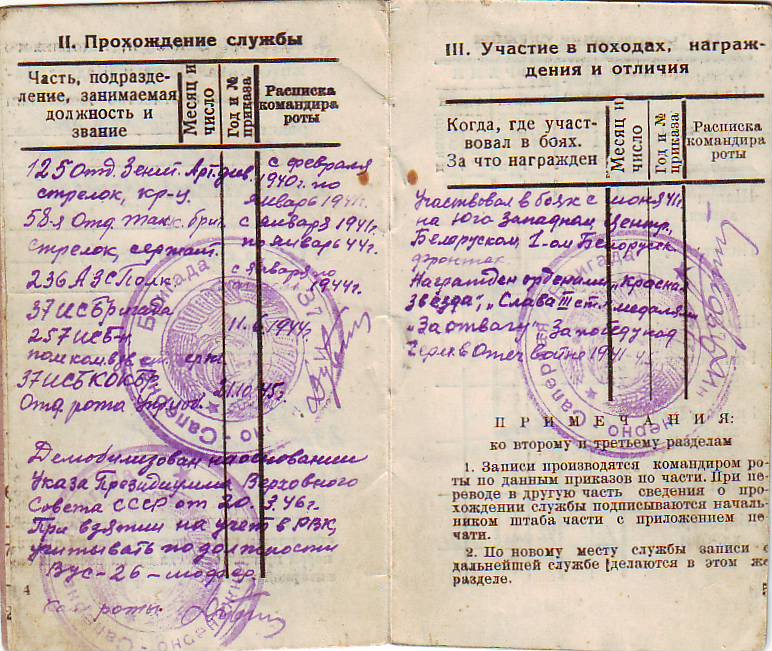 II. Прохождение службы
Часть, подразде-
ление, занимаемая
должность и
звание
Месяц и
число
Год и №
приказа
Расписка
командира
роты
125 Отд. Зенит. Арт. див. с февраля
1940г. по
стрелок, кр-ц. январь 1941г.
58-я Отд. Танк. бриг. с января 1941г.
стрелок, сержант по январь 44г.
236 АЗСПолк с января по
1944г.
37 ИСБригада
257 ИСБ-н 11. 1944г.
пом. ком. взв.
37 ИСБ 21.10.45г.
Отд. рота
Демобилизован на основании
Указа Президиума Верховного
Совета СССР от 20.3.46г.
При взятии на учет в РВК,
учитывать по должности
ВУС-26
роты
4
III. Участие в походах, награж-
дения и отличия
Когда, где участ-
вовал в боях.
За что награжден
Месяц и
число
Год и №
приказа
Расписка
командира
роты
Участвовал в боях с июня 41г.
на Юго Западном, Центр.,
Белоруском, 1-ом Белорусск.
фронтах.
Награжден орденами „Красная
Звезда", „Слава III ст." медалями
„За отвагу" За победу над
Герм. в Отеч. войне 1941-45
ПРИМЕЧАНИЯ:
ко второму и третьему разделам
1. Записи производятся командиром ро-
ты по данным приказов по части. При пе-
реводе в другую часть сведения о про-
хождении службы подписываются началь-
ником штаба части с приложением пе-
чати.
2. По новому месту службы записи о
дальнейшей службе делаются в этом же
разделе.